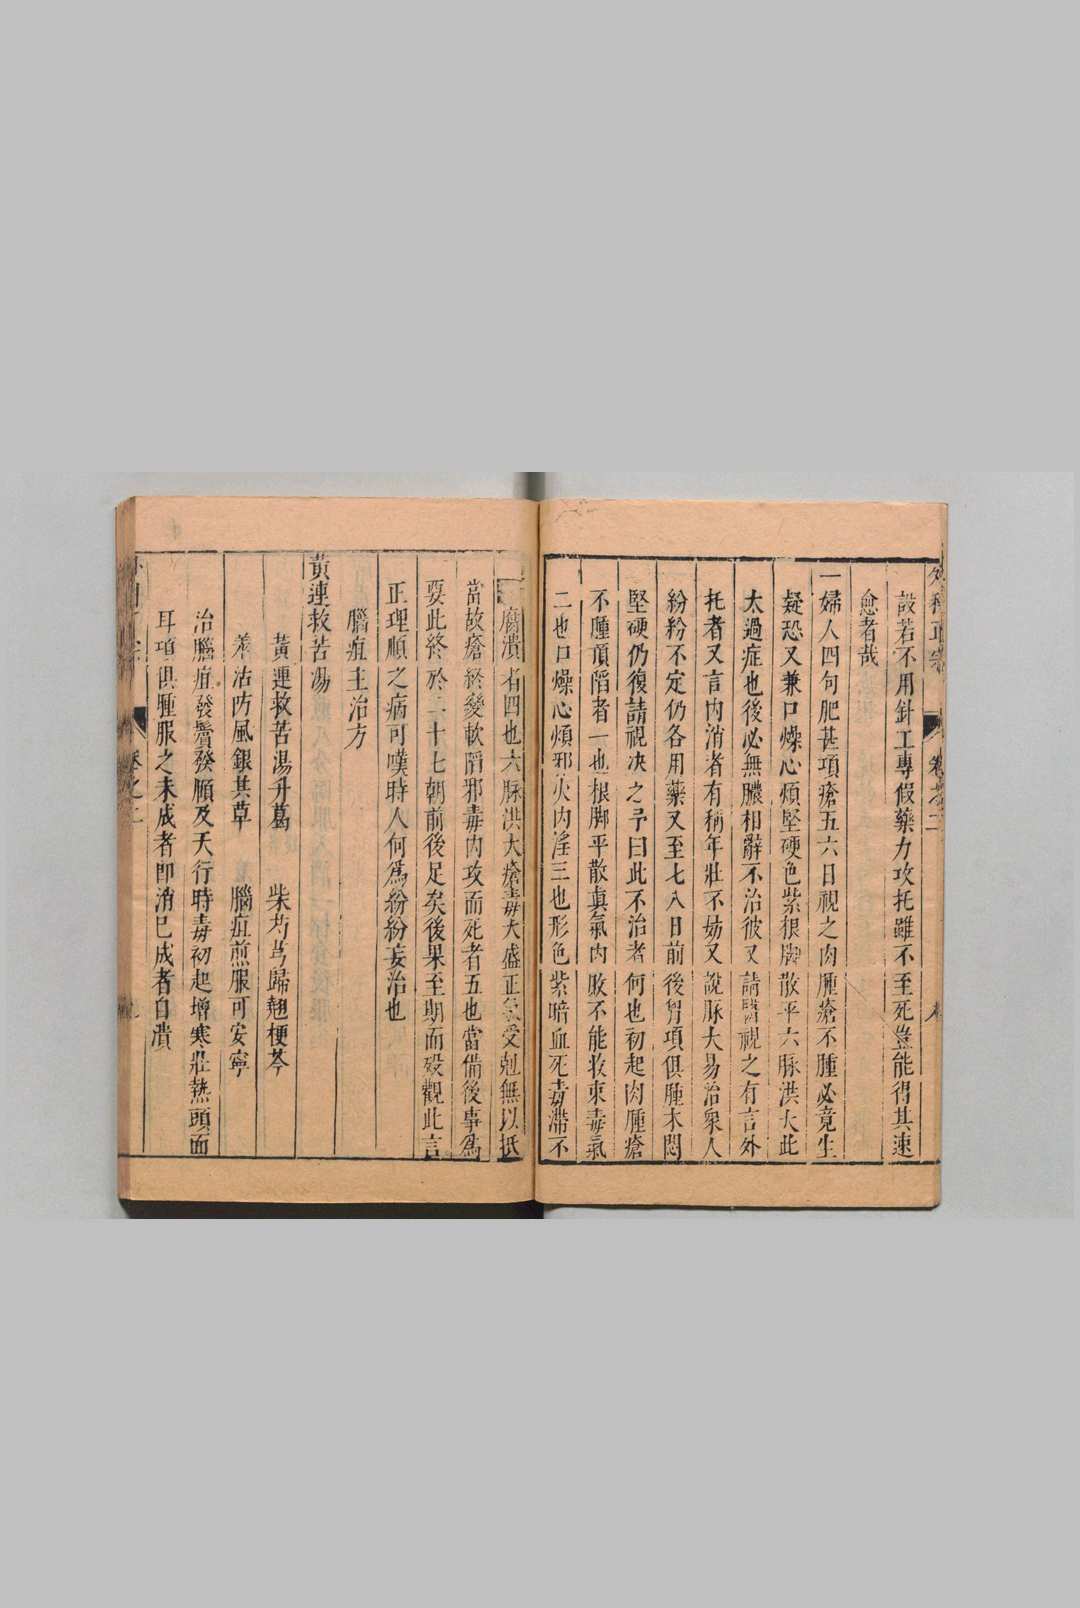 外科正宗 卷之二
設若不用針工專假藥力攻托雖不至死豈能得其速
愈者哉
一婦人四旬肥甚項瘡五六日視之肉腫瘡不腫必竟生
疑恐又兼口燥心煩堅硬色紫根脚散平六脉洪大此
太過症也後必無膿相辭不治彼又請醫視之有言外
托者又言内消者有稱年壯不妨又說脉大易治衆人
紛紛不定仍各用藥又至七八日前後胷項俱腫木悶
堅硬仍復請視决之予曰此不治者何也初起肉腫瘡
不腫頂陷者一也根脚平散眞氣内敗不能收束毒氣
二也口燥心煩邪火内淫三也形色紫暗血死毒滯不
腐潰者四也六脉洪大瘡毒大盛正氣受剋無以抵
當故瘡終變軟陷邪毒内攻而死者五也當備後事爲
要此終於二十七朝前後足矣後果至期而歿觀此言
正理順之病可嘆時人何爲紛紛妄治也
腦疽主治方
黃連救苦湯
黃連救苦湯升葛 柴芍芎歸翹梗芩
羗活防風銀其草 腦疽煎服可安寧
治腦疽發鬢發頤及天行時毒初起增寒壯熱頭面
耳項俱腫服之未成者即消已成者自潰
卷之二